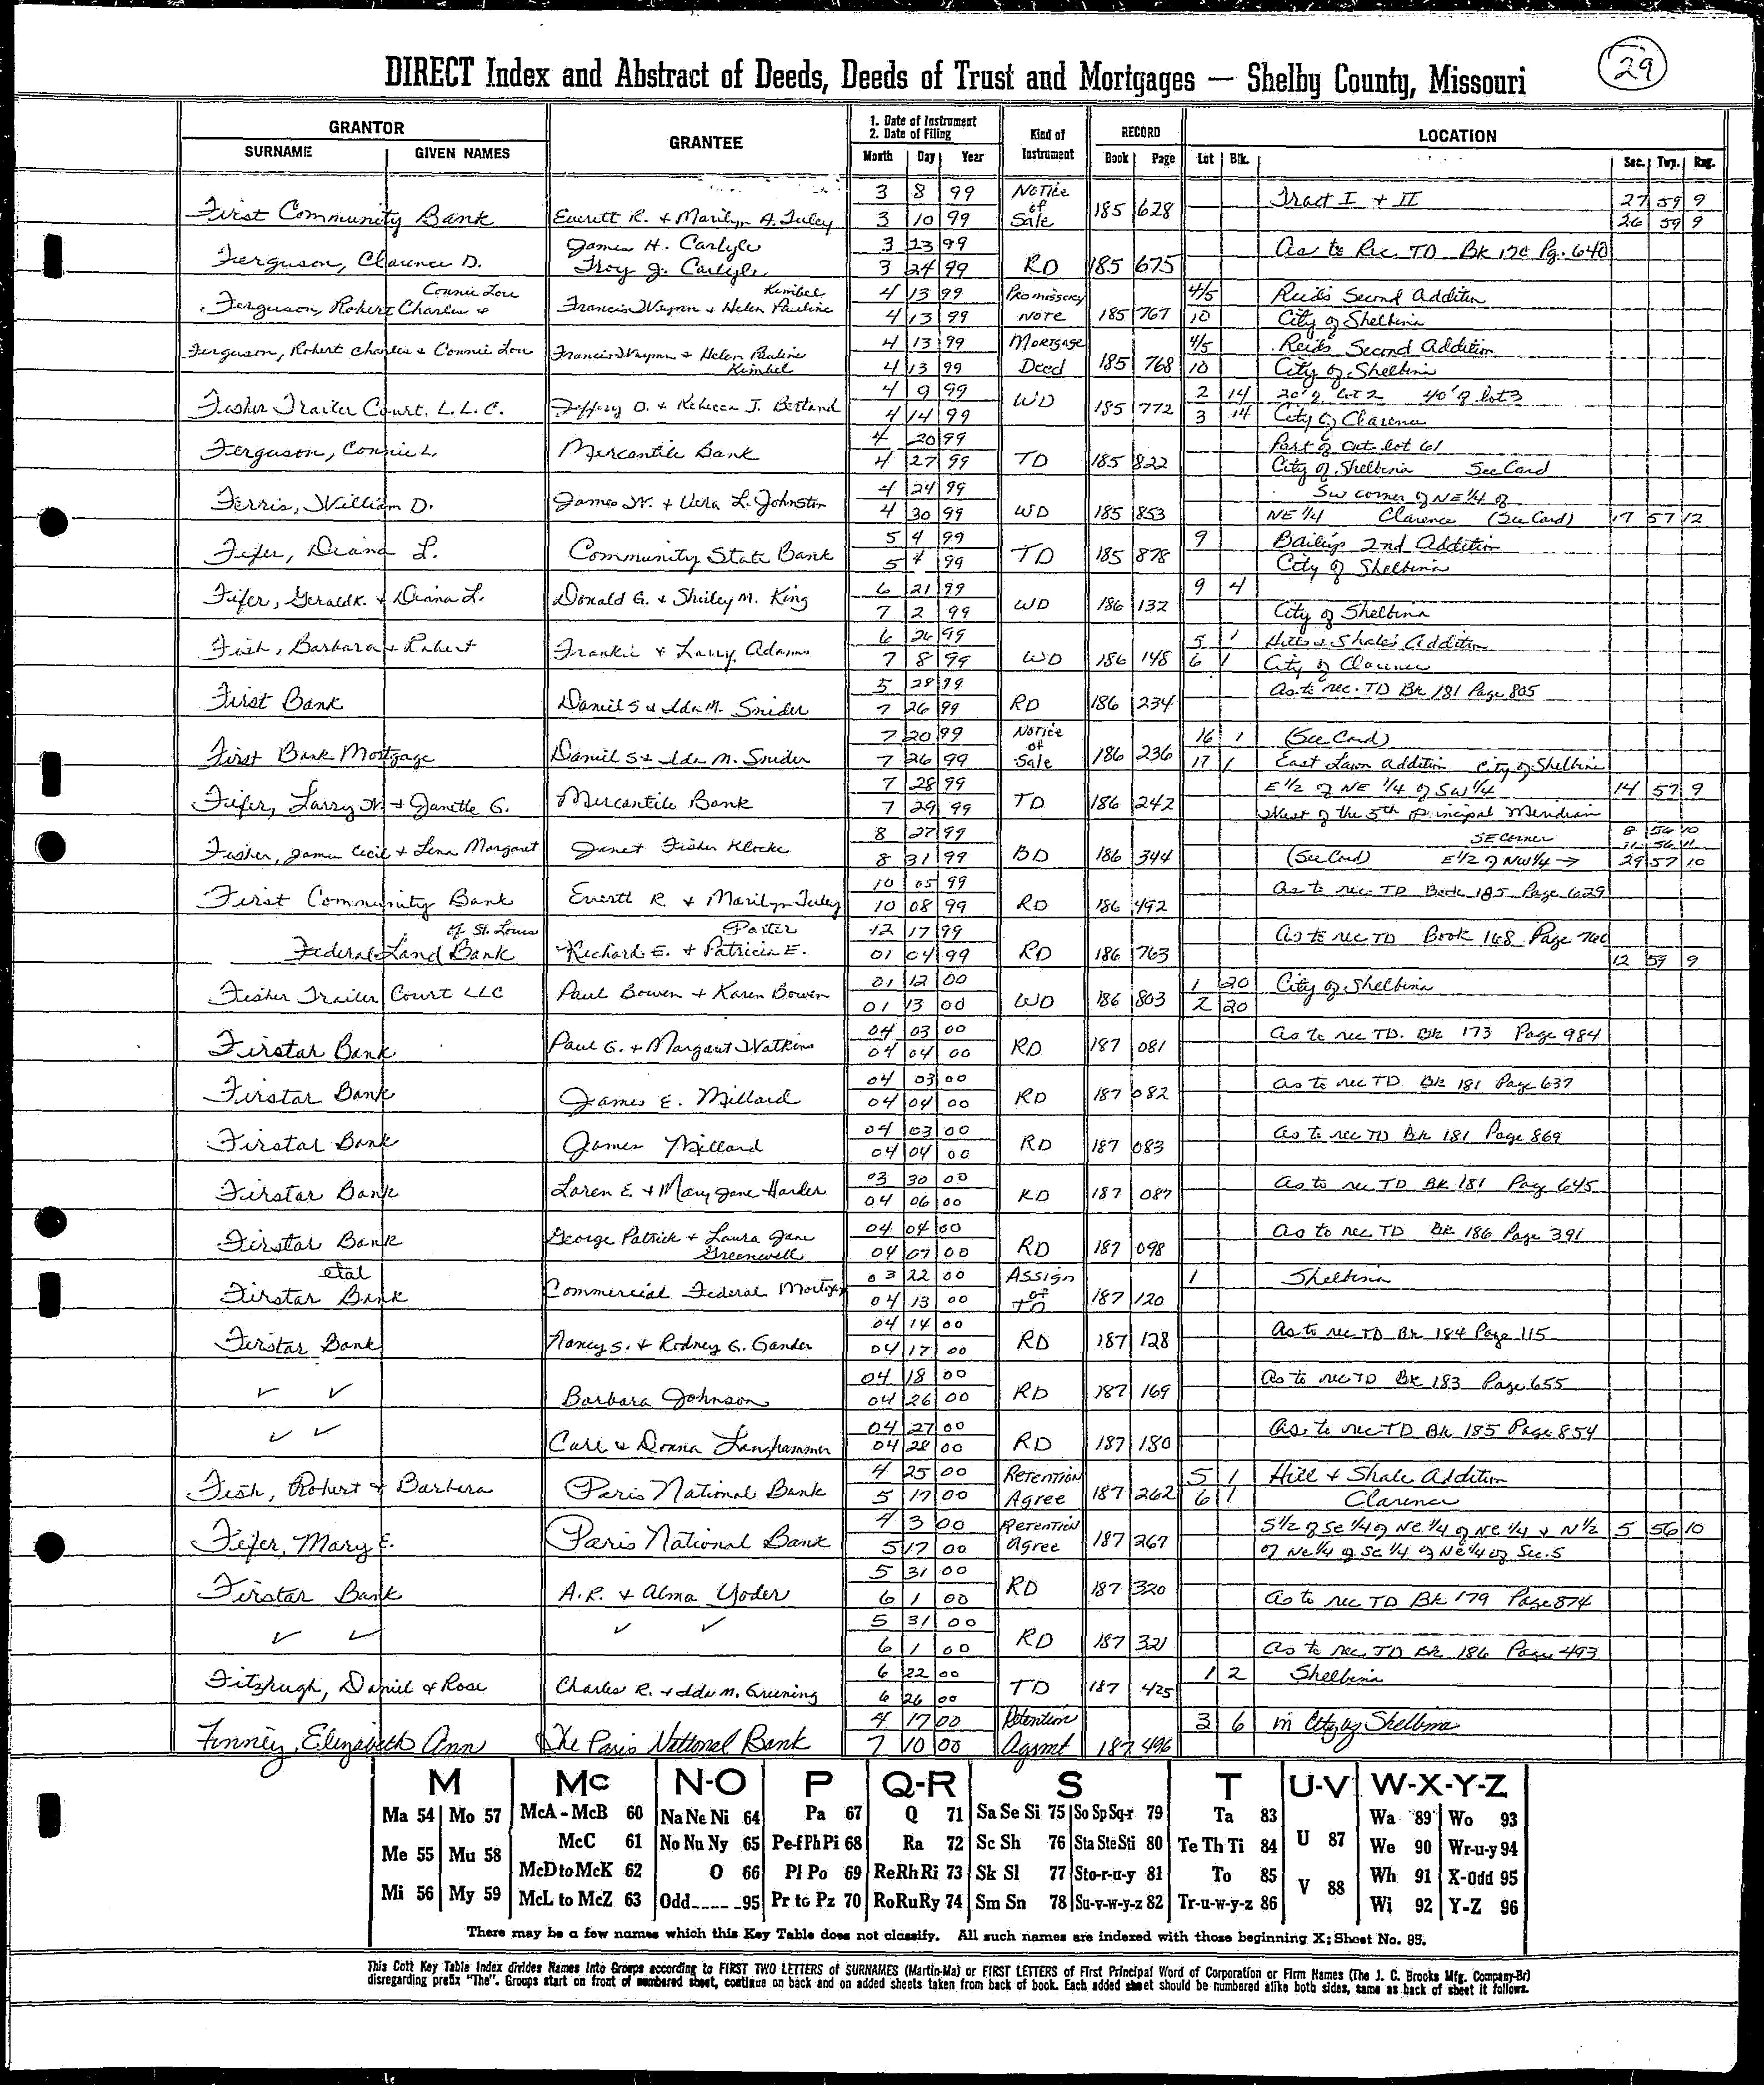 29
DIRECT Index and Abstract of Deeds, Deeds of Trust and Mortgages — Shelby County, Missouri
GRANTOR GRANTEE 1. Date of Instrument 2. Date of Filing Kind of Instrument RECORD LOCATION
SURNAME GIVEN NAMES Month Day Year Book Page Lot Blk. Sec. Twp. Rng.
3 8 99 Notice of Tract I + II 27 59 9
First Community Bank Everett R. + Marilyn A. Tuley 3 10 99 Sale 185 628 26 59 9
James H. Carlyle 3 23 99 As to Rec. TD Bk 170 Pg. 640
Ferguson, Clarence D. Troy J. Carlyle 3 24 99 RD 185 675
Connie Lou Kimbel 4 13 99 Promissory 4/5 Reid's Second Addition
Ferguson, Robert Charles + Francis Wayne + Helen Pauline 4 13 99 Note 185 767 10 City of Shelbina
Ferguson, Robert Charles + Connie Lou Francis Wayne + Helen Pauline 4 13 99 Mortgage 4/5 Reid's Second Addition
Kimbel 4 13 99 Deed 185 768 10 City of Shelbina
4 9 99 2 14 20' of lot 2 40' of lot 3
Fisher Trailer Court. L.L.C. Jeffrey O. + Rebecca J. 4 14 99 WD 185 772 3 14 City of Clarence
4 20 99 Part of out lot 61
Ferguson, Connie L Mercantile Bank 4 27 99 TD 185 822 City of Shelbina See Card
4 24 99 SW corner of NE 1/4 of
Ferris, William D. James W. + Vera L. Johnston 4 30 99 WD 185 853 NE 1/4 Clarence (See Card) 17 57 12
5 4 99 9 2nd Addition
Fifer, Diana L. Community State Bank 5 4 99 TD 185 878 City of Shelbina
6 21 99 9 4
Fifer, Gerald K. + Diana L. Donald G. + Shirley M. King 7 2 99 WD 186 132 City of Shelbina
6 26 99 5 1 Hill + Shale's Addition
Fish, Barbara + Robert Frankie + Larry Adams 7 8 99 WD 186 148 6 1 City of Clarence
5 28 99 As to rec. TD Bk 181 Page 805
First Bank Daniel S + Ida M. Snider 7 26 99 RD 186 234
7 20 99 Notice of 16 1 (See Card)
First Bank Mortgage Daniel S + Ida M. Snider 7 26 99 Sale 186 236 17 1 East Lawn Addition City of Shelbina
7 28 99 E 1/2 of NE 1/4 of SW 1/4 14 57 9
Fifer, Larry W. + Janette G. Mercantile Bank 7 29 99 TD 186 242 West of the 5th Principal Meridian
8 27 99 SE Corner 8 56 10
11 56 11
Fisher, James Cecil + Lena Margaret Janet Fisher Klocke 8 31 99 BD 186 344 (See Card) E 1/2 of NW 1/4 → 29 57 10
10 05 99 As to rec. TD Book 185 Page 629
First Community Bank Everett R + Marilyn Tuley 10 08 99 RD 186 492
of St. Louis Porter 12 17 99 As to rec TD Book 168 Page
Federal Land Bank Richard E. + Patricia E. 01 04 99 RD 186 763 12 59 9
01 12 00 1 20 City of Shelbina
Fisher Trailer Court LLC Paul Bowen + Karen Bowen 01 13 00 WD 186 803 2 20
04 03 00 As to rec TD. Bk 173 Page 984
Firstar Bank Paul G. + Margaret Watkins 04 04 00 RD 187 081
04 03 00 As to rec TD Bk 181 Page 637
Firstar Bank James E. Millard 04 04 00 RD 187 082
04 03 00 As to rec TD Bk 181 Page 869
Firstar Bank James Millard 04 04 00 RD 187 083
03 30 00 As to rec TD Bk 181 Page 645
Firstar Bank Loren E. + Mary Jane Harder 04 06 00 RD 187 087
George Patrick + Laura Jane 04 04 00 As to rec. TD Bk 186 Page 391
Firstar Bank Greenwell 04 07 00 RD 187 098
etal 03 22 00 Assign of 1 Shelbina
Firstar Bank Commercial Federal Mortgage 04 13 00 TD 187 120
04 14 00 As to rec TD Bk 184 Page 115
Firstar Bank Nancy S. + Rodney G. Gander 04 17 00 RD 187 128
04 18 00 As to rec TD Bk 183 Page 655
✓ ✓ Barbara Johnson 04 26 00 RD 187 169
04 27 00 As to rec TD Bk 185 Page 854
✓ ✓ Carl + Donna Langhammer 04 28 00 RD 187 180
4 25 00 Retention 5 1 Hill + Shale Addition
Fish, Robert + Barbara Paris National Bank 5 17 00 Agree 187 262 6 1 Clarence
4 3 00 Retention S 1/2 of SE 1/4 of NE 1/4 of NE 1/4 + N 1/2 5 56 10
Fifer, Mary E. Paris National Bank 5 17 00 Agree 187 267 of NE 1/4 of SE 1/4 of NE 1/4 of Sec. 5
5 31 00
Firstar Bank A.R. + Alma Yoder 6 1 00 RD 187 320 As to rec TD Bk 179 Page 874
5 31 00
✓ ✓ ✓ ✓ 6 1 00 RD 187 321 As to rec. TD Bk 186 Page 493
6 22 00 1 2 Shelbina
Fitzhugh, Daniel & Rose Charles R. + Ida M. Greening 6 26 00 TD 187 425
4 17 00 Retention 3 6 in City of Shelbina
Finney, Elizabeth Ann The Paris National Bank 7 10 00 Agsmt 187 496
M Mc N-O P Q-R S T U-V W-X-Y-Z
Ma 54 Mo 57 McA - McB 60 Na Ne Ni 64 Pa 67 Q 71 Sa Se Si 75 So Sp Sq-r 79 Ta 83 Wa 89 Wo 93
Me 55 Mu 58 McC 61 No Nu Ny 65 Pe-f Ph Pi 68 Ra 72 Sc Sh 76 Sta Ste Sti 80 Te Th Ti 84 U 87 We 90 Wr-u-y 94
McD to McK 62 O 66 Pl Po 69 Re Rh Ri 73 Sk Sl 77 Sto-r-u-y 81 To 85 V 88 Wh 91 X-Odd 95
Mi 56 My 59 McL to McZ 63 Odd 95 Pr to Pz 70 Ro Ru Ry 74 Sm Sn 78 Su-v-w-y-z 82 Tr-u-w-y-z 86 Wi 92 Y-Z 96
There may be a few names which this Key Table does not classify. All such names are indexed with those beginning X; Sheet No. 95.
This Cott Key Table Index divides Names into Groups according to FIRST TWO LETTERS of SURNAMES (Martin-Ma) or FIRST LETTERS of First Principal Word of Corporation or Firm Names (The J. C. Brooks Mfg. Company-Br)
disregarding prefix "The". Groups start on front of numbered sheet, continue on back and on added sheets taken from back of book. Each added sheet should be numbered alike both sides, same as back of sheet it follows.